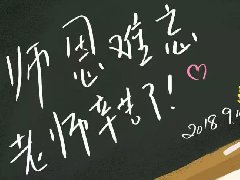 师恩难忘
老师辛苦了!
2018.9.